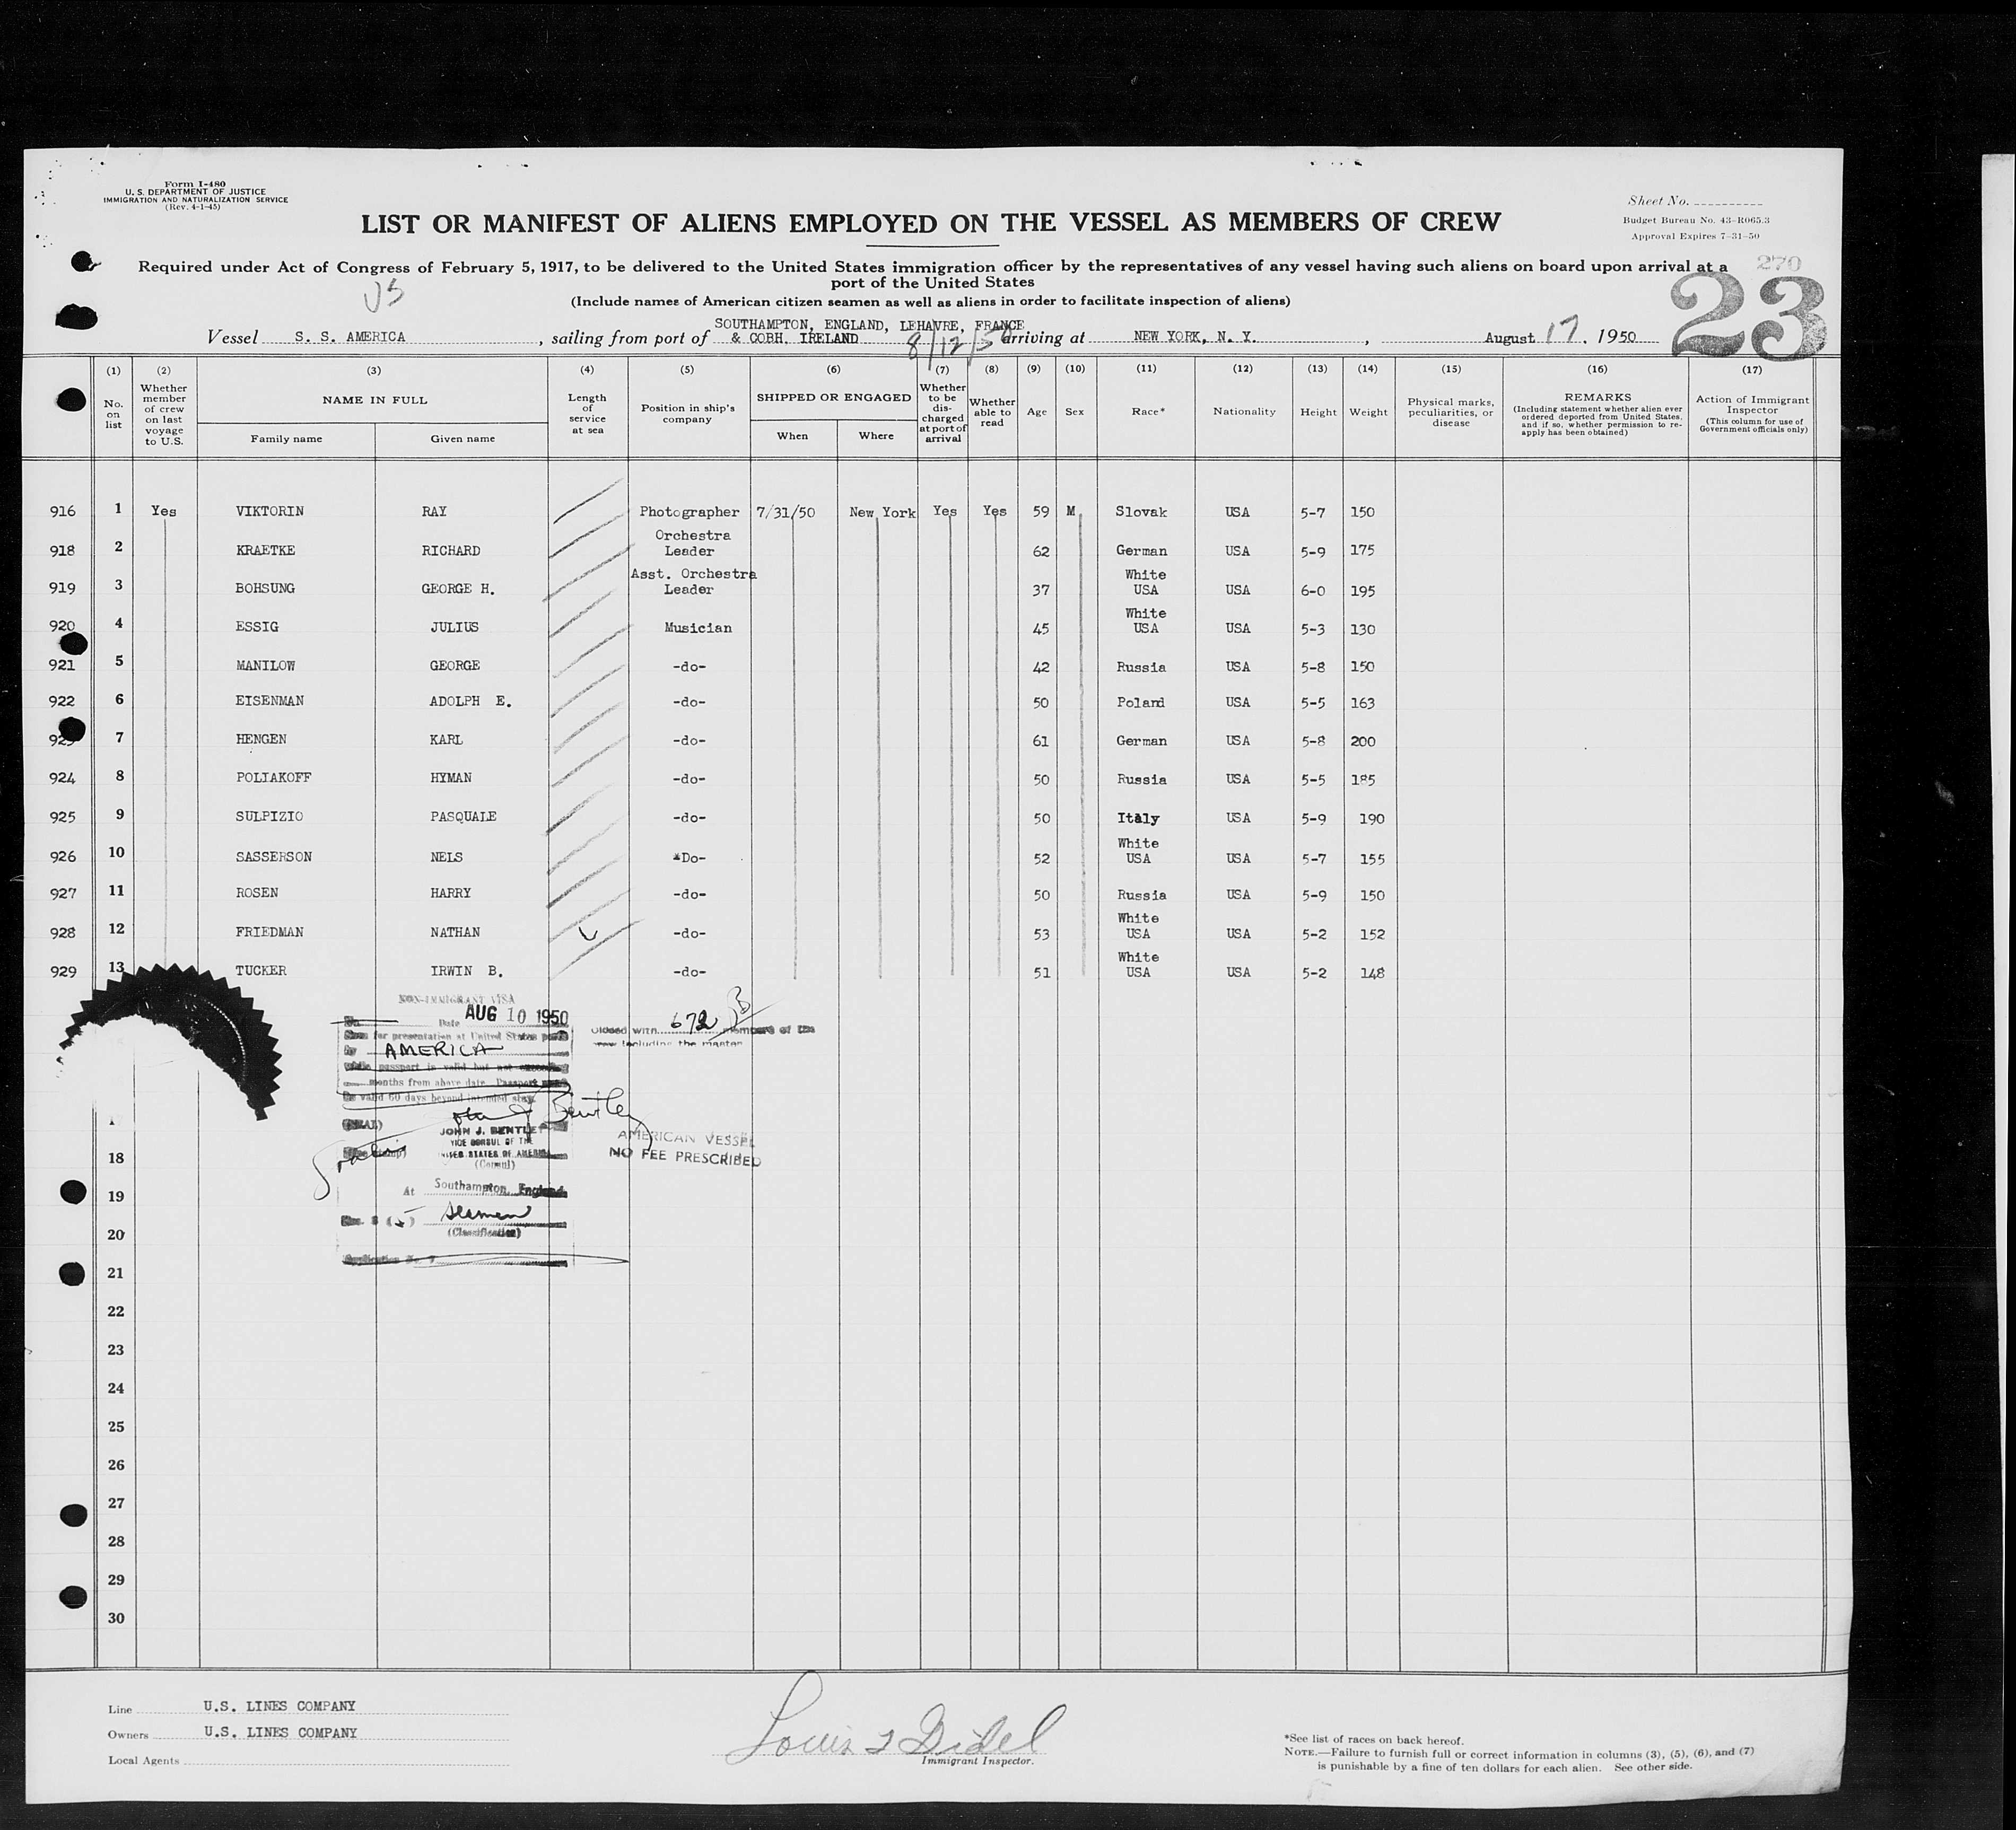 Form I-480
U. S. DEPARTMENT OF JUSTICE
IMMIGRATION AND NATURALIZATION SERVICE
(Rev. 4-1-45)
Sheet No.
Budget Bureau No. 43-R065.3
Approval Expires 7-31-50
LIST OR MANIFEST OF ALIENS EMPLOYED ON THE VESSEL AS MEMBERS OF CREW
Required under Act of Congress of February 5, 1917, to be delivered to the United States immigration officer by the representatives of any vessel having such aliens on board upon arrival at a
port of the United States
270
23
US
(Include names of American citizen seamen as well as aliens in order to facilitate inspection of aliens)
SOUTHAMPTON, ENGLAND, LEHAVRE, FRANCE
Vessel S. S. AMERICA , sailing from port of & COBH. IRELAND 8/12/50 arriving at NEW YORK, N. Y. , August 17, 1950
(1) (2) (3) (4) (5) (6) (7) (8) (9) (10) (11) (12) (13) (14) (15) (16) (17)
No. on list
Whether member of crew on last voyage to U.S.
NAME IN FULL
Family name Given name
Length of service at sea
Position in ship's company
SHIPPED OR ENGAGED
When Where
Whether to be discharged at port of arrival
Whether able to read
Age Sex Race* Nationality Height Weight
Physical marks, peculiarities, or disease
REMARKS
(Including statement whether alien ever ordered deported from United States, and if so, whether permission to re-apply has been obtained)
Action of Immigrant Inspector
(This column for use of Government officials only)
916 1 Yes VIKTORIN RAY Photographer 7/31/50 New York Yes Yes 59 M Slovak USA 5-7 150
918 2 KRAETKE RICHARD Orchestra Leader 62 German USA 5-9 175
919 3 BOHSUNG GEORGE H. Asst. Orchestra Leader 37 White USA USA 6-0 195
920 4 ESSIG JULIUS Musician 45 White USA USA 5-3 130
921 5 MANILOW GEORGE -do- 42 Russia USA 5-8 150
922 6 EISENMAN ADOLPH E. -do- 50 Poland USA 5-5 163
923 7 HENGEN KARL -do- 61 German USA 5-8 200
924 8 POLIAKOFF HYMAN -do- 50 Russia USA 5-5 185
925 9 SULPIZIO PASQUALE -do- 50 Italy USA 5-9 190
926 10 SASSERSON NELS *Do- 52 White USA USA 5-7 155
927 11 ROSEN HARRY -do- 50 Russia USA 5-9 150
928 12 FRIEDMAN NATHAN -do- 53 White USA USA 5-2 152
929 13 TUCKER IRWIN B. -do- 51 White USA USA 5-2 148
NON-IMMIGRANT VISA
Date AUG 10 1950
for presentation at United States
AMERICA
passport is valid but not
months from above date. Passport
valid 60 days beyond intended stay.
(SEAL)
John J Bentley
JOHN J. BENTLEY
VICE CONSUL OF THE
UNITED STATES OF AMERICA
(Consul)
At Southampton, England
Seamen
(Classification)
Application No.
with 672 members of the
crew including the master
AMERICAN VESSEL
NO FEE PRESCRIBED
18
19
20
21
22
23
24
25
26
27
28
29
30
Line U.S. LINES COMPANY
Owners U.S. LINES COMPANY
Local Agents
Immigrant Inspector.
*See list of races on back hereof.
NOTE.—Failure to furnish full or correct information in columns (3), (5), (6), and (7)
is punishable by a fine of ten dollars for each alien. See other side.